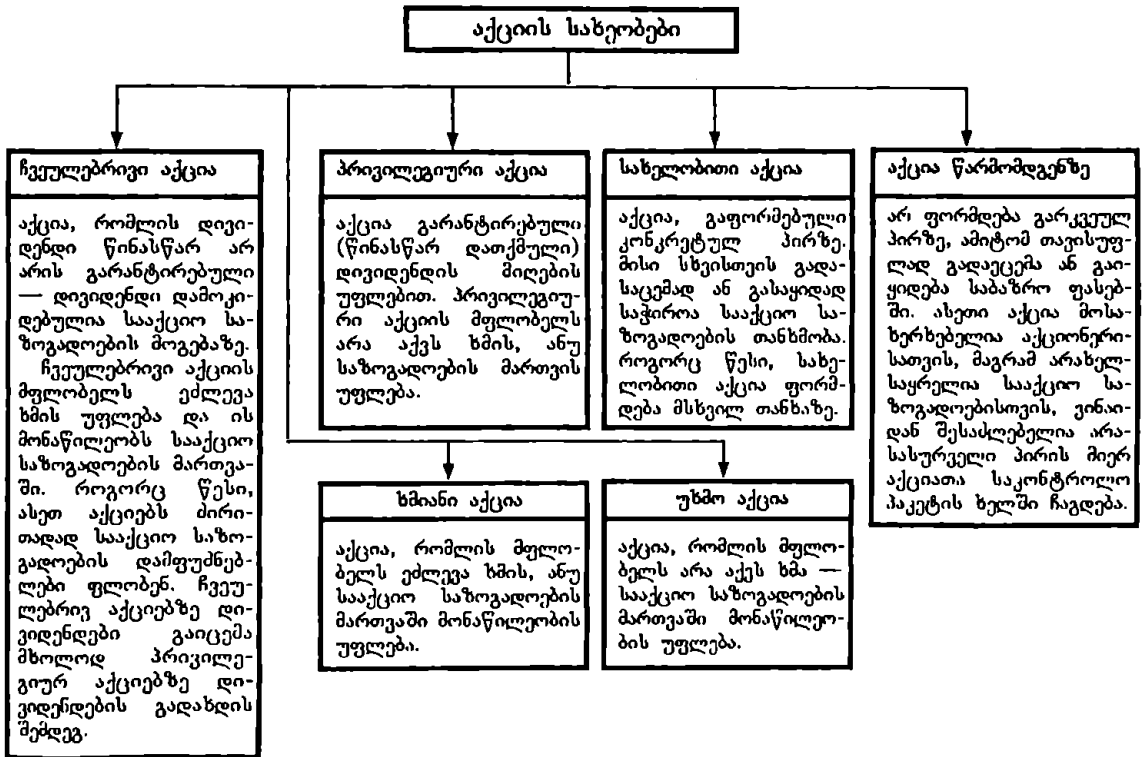 აქციის სახეობები
ჩვეულებრივი აქცია
აქცია, რომლის დივი-
დენდი წინასწარ არ
არის გარანტირებული
— დივიდენდი დამოკი-
დებულია სააქციო სა-
ზოგადოების მოგებაზე.
ჩვეულებრივი აქციის
მფლობელს ეძლევა
ხმის უფლება და ის
მონაწილეობს სააქციო
საზოგადოების მართვა-
ში. როგორც წესი,
ასეთ აქციებს ძირი-
თადად სააქციო საზო-
გადოების დამფუძნებ-
ლები ფლობენ. ჩვეუ-
ლებრივ აქციებზე დი-
ვიდენდები გაიცემა
მხოლოდ პრივილე-
გიურ აქციებზე დი-
ვიდენდების გადახდის
შემდეგ.
პრივილეგიური აქცია
აქცია გარანტირებული
(წინასწარ დათქმული)
დივიდენდის მიღების
უფლებით. პრივილეგიუ-
რი აქციის მფლობელს
არა აქვს ხმის, ანუ
საზოგადოების მართვის
უფლება.
სახელობითი აქცია
აქცია, გაფორმებული
კონკრეტულ პირზე.
მისი სხვისთვის გადა-
საცემად ან გასაყიდად
საჭიროა სააქციო სა-
ზოგადოების თანხმობა.
როგორც წესი, სახე-
ლობითი აქცია ფორმ-
დება მსხვილ თანხაზე.
აქცია წარმომდგენზე
არ ფორმდება გარკვეულ
პირზე, ამიტომ თავისუფ-
ლად გადაეცემა ან გაი-
ყიდება საბაზრო ფასებ-
ში. ასეთი აქცია მოსა-
ხერხებელია აქციონერი-
სათვის, მაგრამ არახელ-
საყრელია სააქციო სა-
ზოგადოებისთვის, ვინაი-
დან შესაძლებელია არა-
სასურველი პირის მიერ
აქციათა საკონტროლო
პაკეტის ხელში ჩაგდება.
ხმიანი აქცია
აქცია, რომლის მფლო-
ბელს ეძლევა ხმის, ანუ
სააქციო საზოგადოების
მართვაში მონაწილეობის
უფლება.
უხმო აქცია
აქცია, რომლის მფლო-
ბელს არა აქვს ხმა —
სააქციო საზოგადოების
მართვაში მონაწილეო-
ბის უფლება.